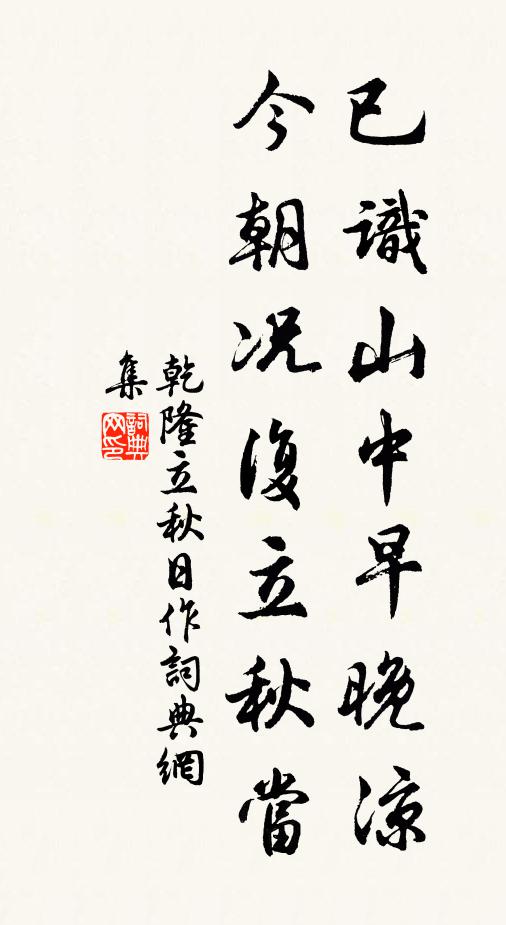 已識山中早晚涼
今朝况復立秋當
乾隆立秋日作詞典網
集
詞典
网印